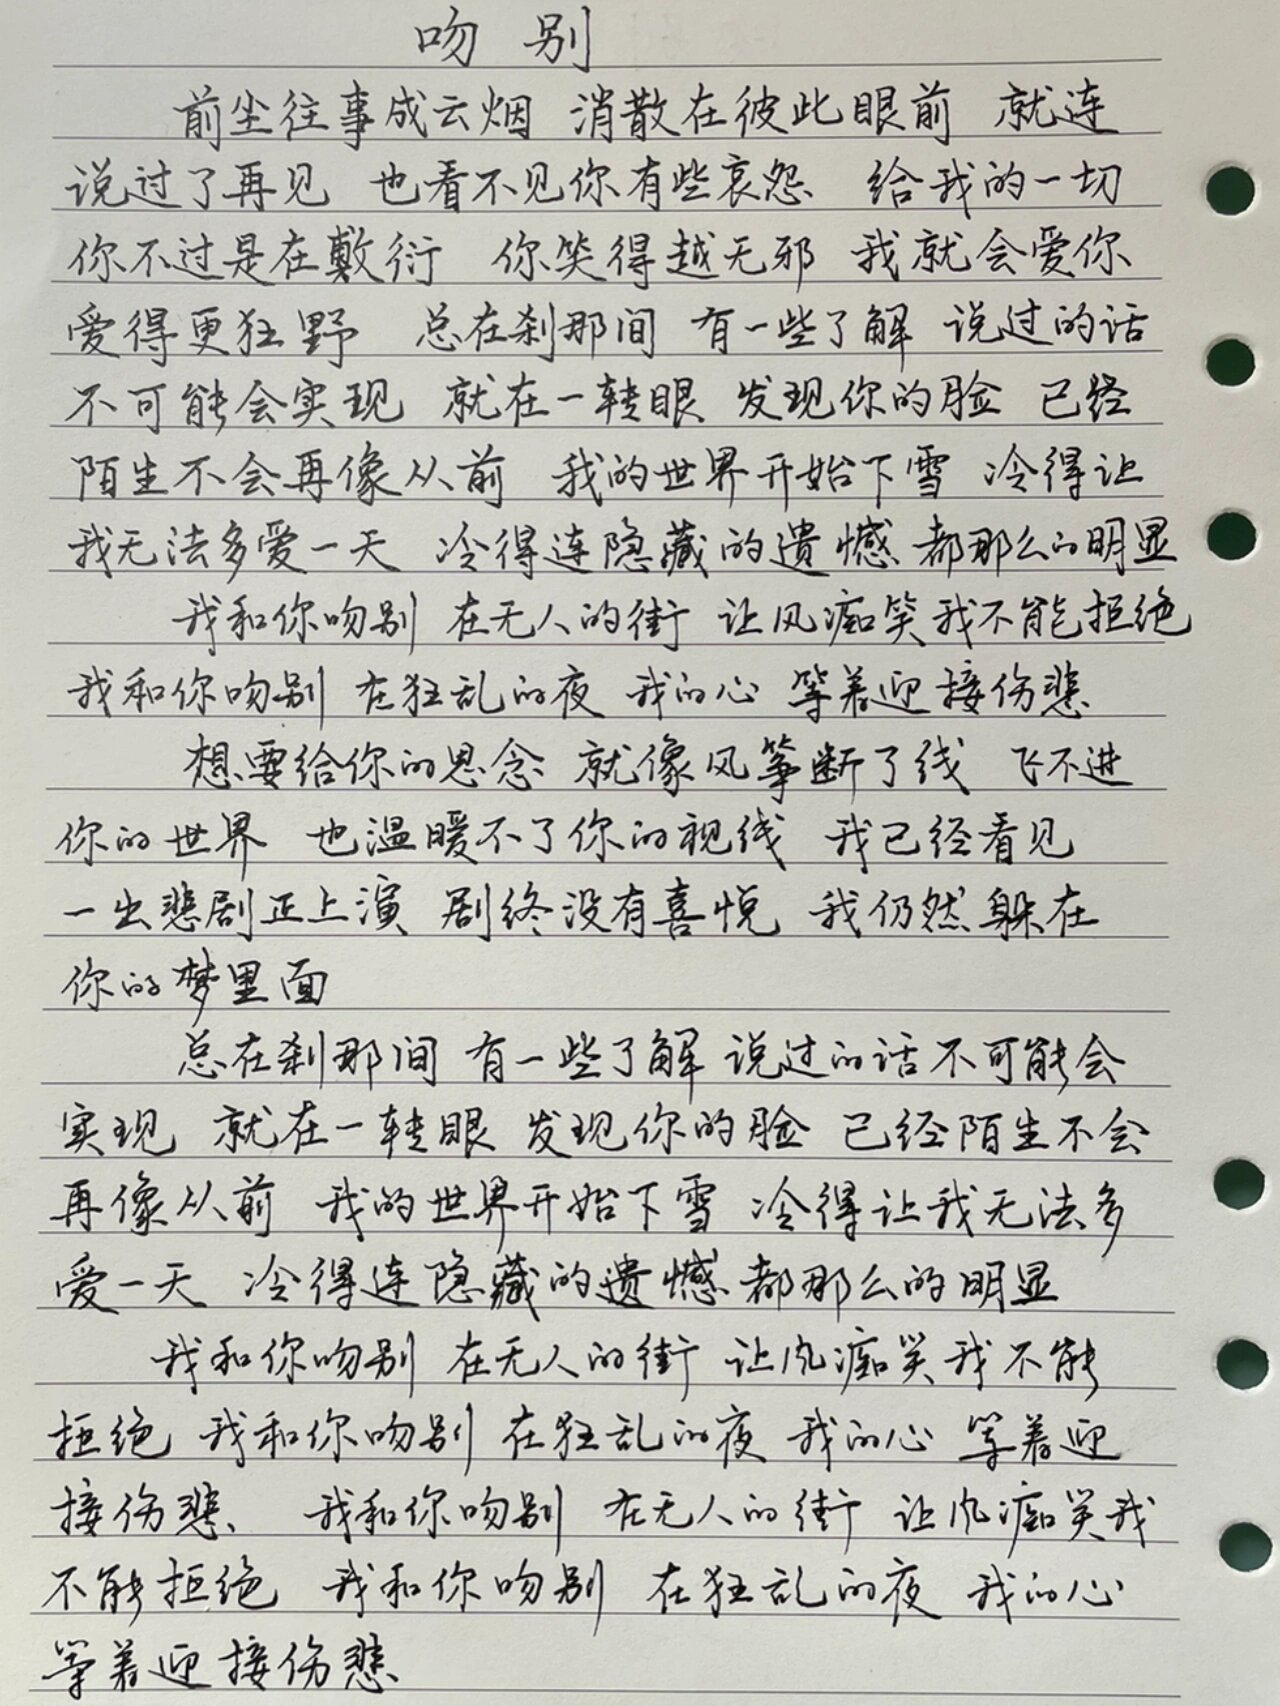 吻别
前尘往事成云烟 消散在彼此眼前 就连
说过了再见 也看不见你有些哀怨 给我的一切
你不过是在敷衍 你笑得越无邪 我就会爱你
爱得更狂野 总在刹那间 有一些了解 说过的话
不可能会实现 就在一转眼 发现你的脸 已经
陌生不会再像从前 我的世界开始下雪 冷得让
我无法多爱一天 冷得连隐藏的遗憾 都那么的明显
我和你吻别 在无人的街 让风痴笑我不能拒绝
我和你吻别 在狂乱的夜 我的心 等着迎接伤悲
想要给你的思念 就像风筝断了线 飞不进
你的世界 也温暖不了你的视线 我已经看见
一出悲剧正上演 剧终没有喜悦 我仍然躲在
你的梦里面
总在刹那间 有一些了解 说过的话不可能会
实现 就在一转眼 发现你的脸 已经陌生不会
再像从前 我的世界开始下雪 冷得让我无法多
爱一天 冷得连隐藏的遗憾 都那么的明显
我和你吻别 在无人的街 让风痴笑我不能
拒绝 我和你吻别 在狂乱的夜 我的心 等着迎
接伤悲 我和你吻别 在无人的街 让风痴笑我
不能拒绝 我和你吻别 在狂乱的夜 我的心
等着迎接伤悲